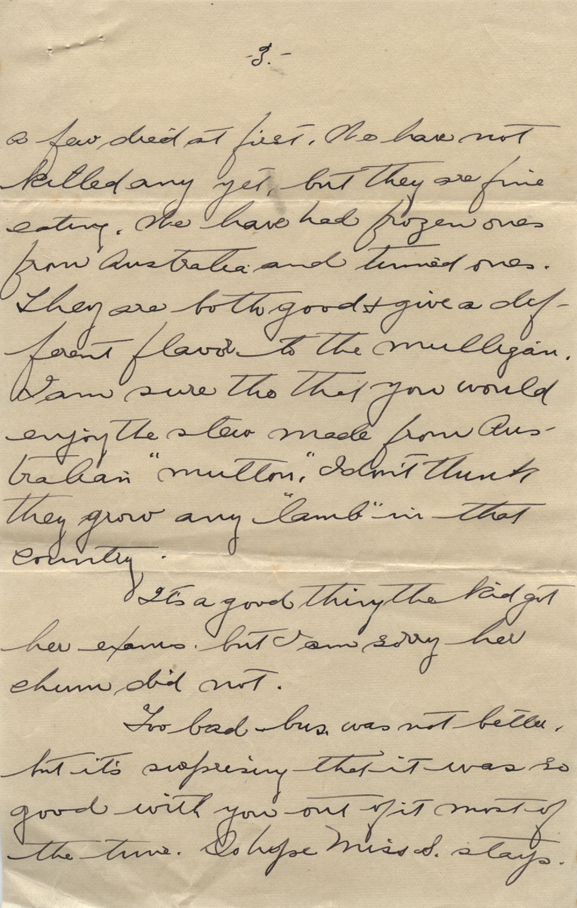 -3.-
a few died at first. We have not
killed any yet, but they are fine
eating. We have had frozen ones
from Australia and tinned ones.
They are both good & give a dif-
ferent flavor to the mulligan.
I am sure tho that you would
enjoy the stew made from Aus-
tralian "mutton," I don't think
they grow any "lamb" in that
country.
It's a good thing the kid got
her exams. but I am sorry her
chum did not.
Too bad bus. was not better.
but it's surprising that it was so
good with you out of it most of
the time. Do hope Miss S. stays.